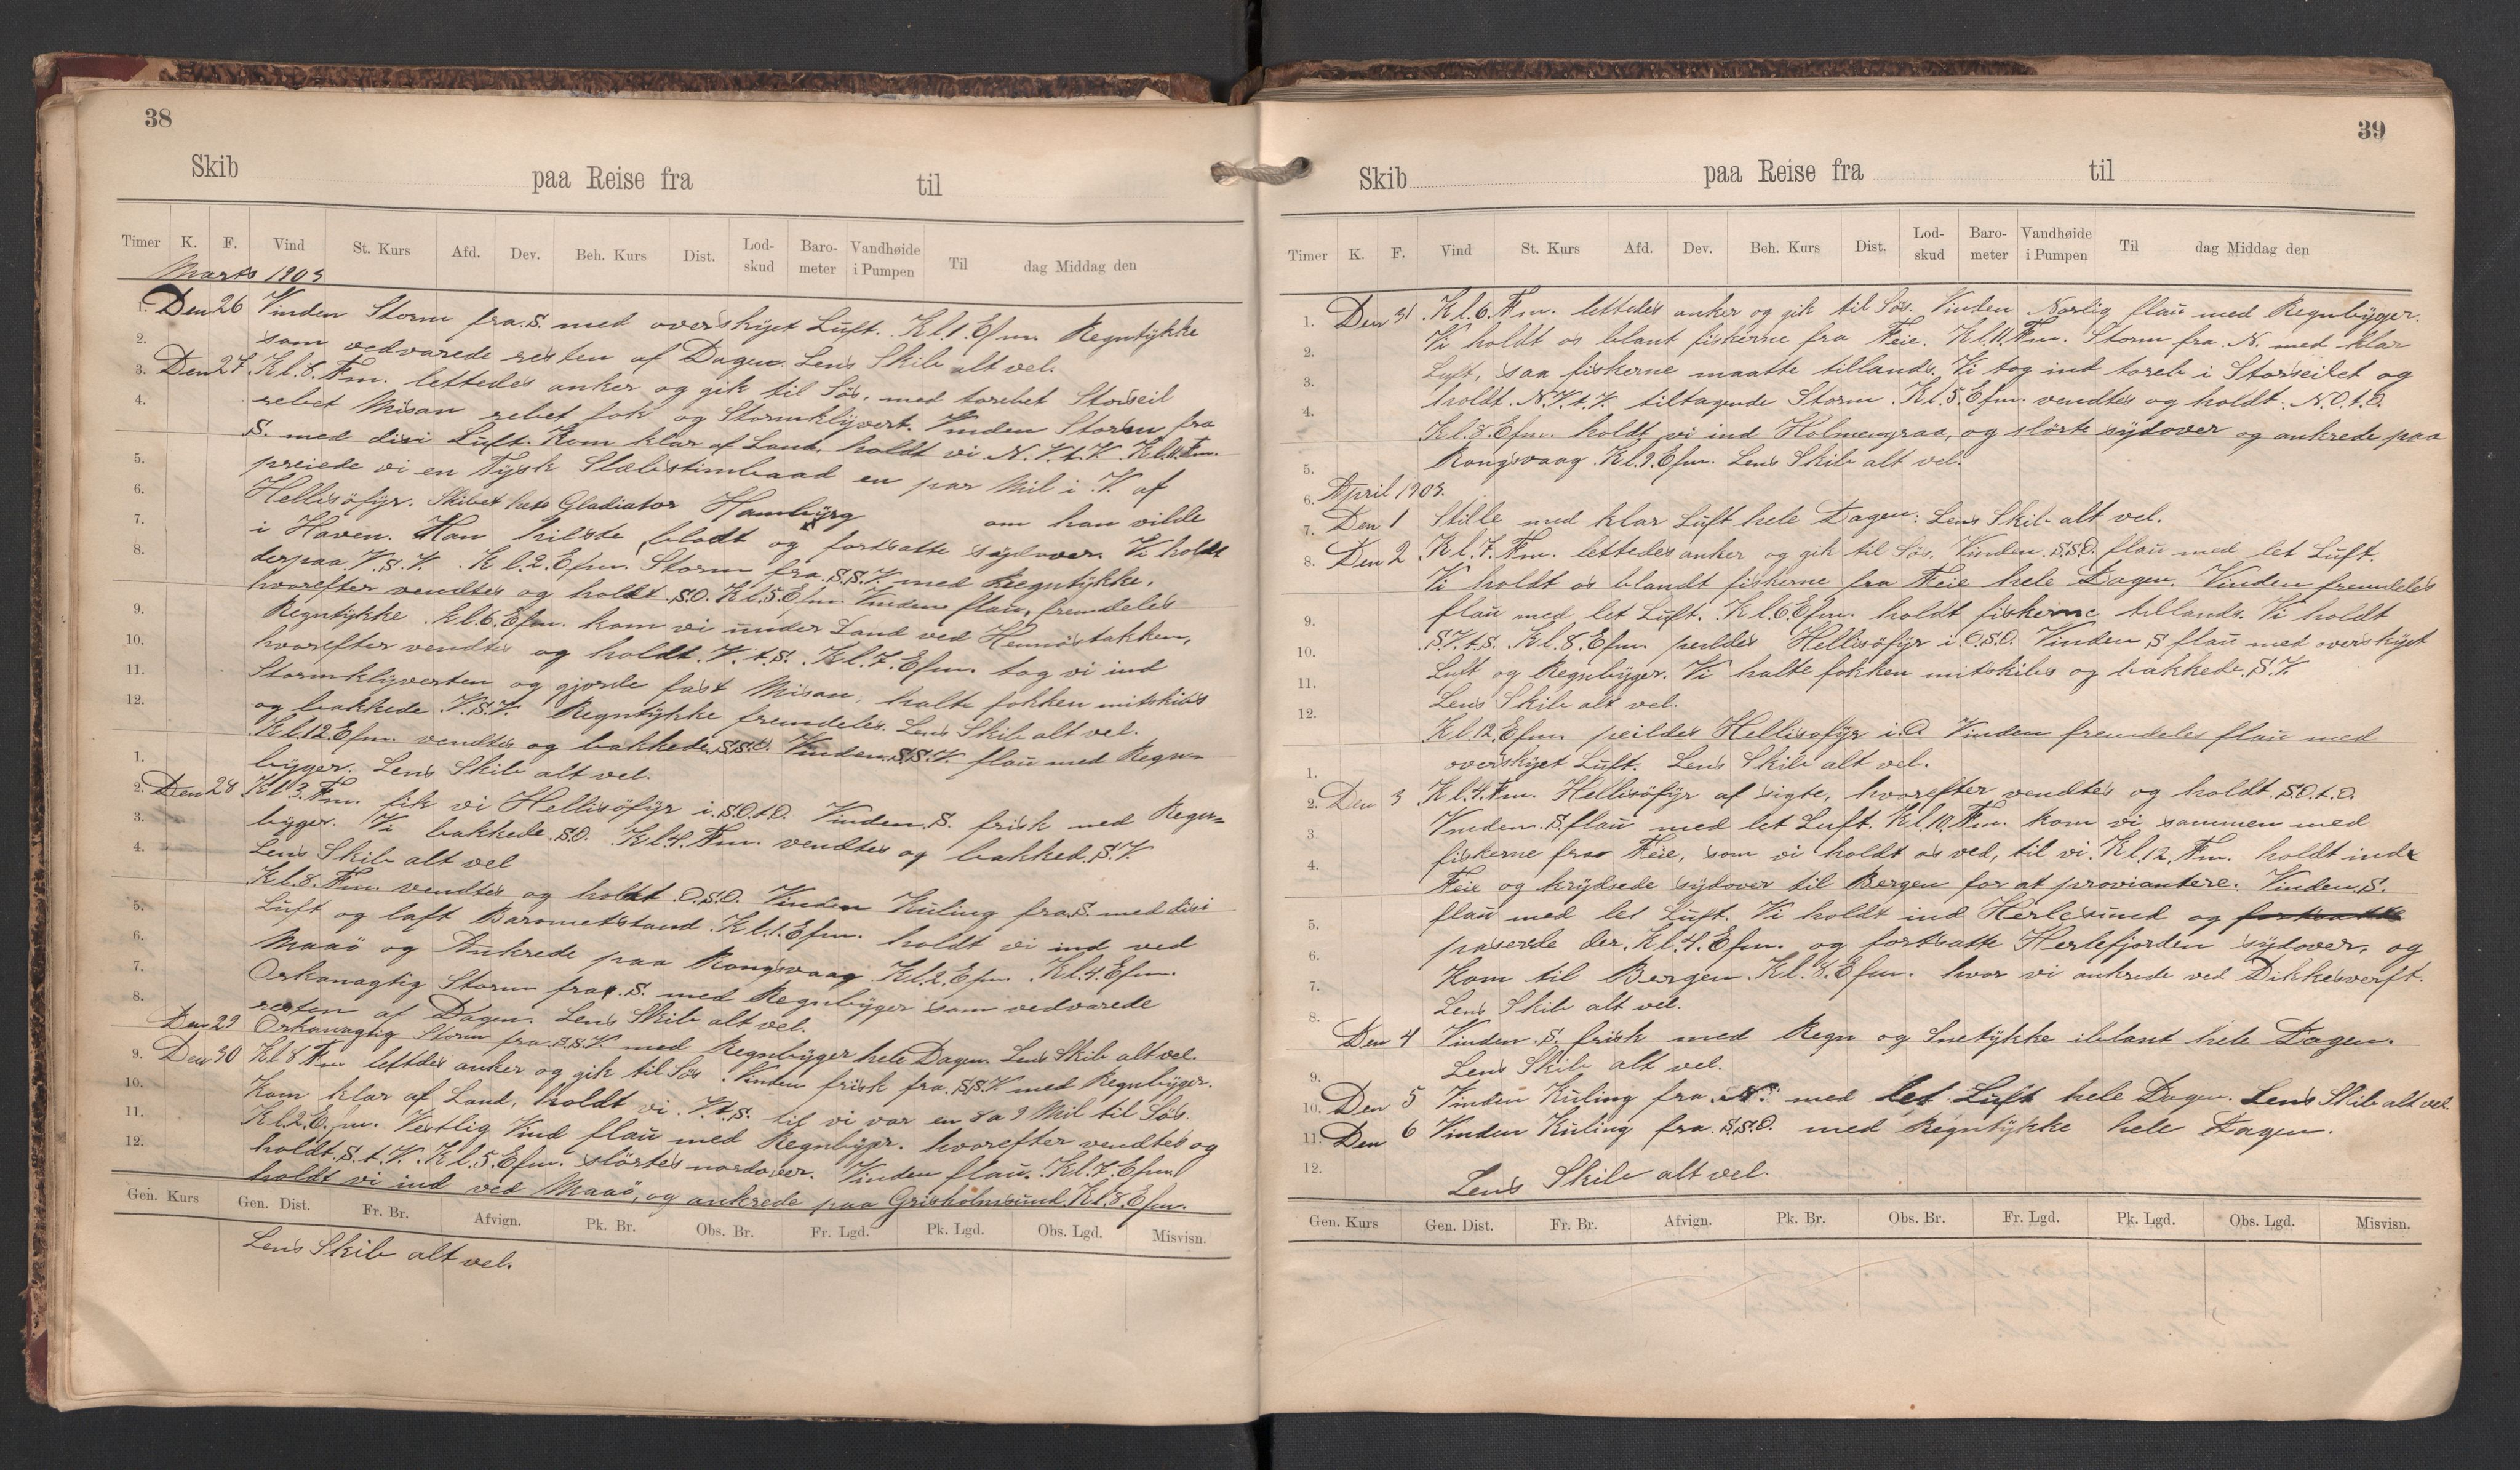 38
Skib paa Reise fra til
Timer K. F. Vind St. Kurs Afd. Dev. Beh. Kurs Dist. Lod-skud Baro-meter Vandhøide i Pumpen Til dag Middag den
Marts 1903
1. Den 26 Vinden Storm fra S. med overskÿet Lüft. Kl.1.Efm. Regntÿkke
2. som vedvarede resten af Dagen. Lens Skib alt vel.
3. Den 27. Kl.8.Fm. lettedes anker og gik til Søs. med torebet Storseil
4. rebet Misan rebet fok og Stormklÿvert. Vinden Storm fra
S. med disi Lüft. Kom klar af Land, holdt vi N.V.t.V. Kl.11.Fm.
5. preiede vi en Tÿsk Slæbestimbaad en par Mil i V. af
6. Hellisöfÿr. Skibet hete Gladiator Hambürg om han vilde
7. i Haven. Han hilste blodt og fortsatte sÿdover. Vi holdt
8. derpaa V.S.V. Kl.2.Efm. Storm fra S.S.V. med Regntÿkke.
hvorefter vendtes og holdt S.O. Kl.5.Efm. Vinden flaü, fremdeles
9. Regntÿkke. Kl.6.Efm. kom vi ünder Land ved Hennöstakken,
10. hvorefter vendtes og holdt V.t.S. Kl.7.Efm. tog vi ind
11. Stormklÿverten og gjorde fast Misan, halte fokken mitskibs
12. og bakkede V.S.V. Regntÿkke fremdeles. Lens Skib alt vel.
Kl.12.Efm. vendtes og bakkede S.S.O. Vinden S.S.V. flaü med Regn-
1. bÿger. Lens Skib alt vel.
2. Den 28 Kl.3.Fm. fik vi Hellisöfÿr i S.O.t.O. Vinden S. frisk med Regn-
3. bÿger. Vi bakkede S.O. Kl.4.Fm. vendtes og bakked S.V.
4. Lens Skib alt vel
Kl.8.Fm. vendtes og holdt O.S.O. Vinden Küling fra S. med disi
5. Lüft og laft Barometstand. Kl.1.Efm. holdt vi ind ved
6. Maaö og Ankrede paa Rongsvaag Kl.2.Efm. Kl.4 Efm.
7. Orkanagtig Storm fra S. med Regnbÿger som vedvarede
8. resten af Dagen. Lens Skib alt vel.
Den 29 Orkanagtig Storm fra S.S.V. med Regnbÿger hele Dagen. Lens Skib alt vel.
9. Den 30 Kl.8 Fm lettdes anker og gik til Søs. Vinden frisk fra S.S.V. med Regnbÿger.
10. Kom klar af Land, holdt vi V.t.S. til vi var en 8 a 9 Mil til Søs.
11. Kl.2.E.fm. Vestlig Vind flaü med Regnbÿgr. hvorefter vendtes og
12. holdt S.t.V. Kl.5.Efm. slörtes nordover. Vinden flaü. Kl.7.Efm.
holdt vi ind ved Maaö, og ankrede paa Grisholmsünd Kl.8.Efm.
Gen. Kurs Gen. Dist. Fr. Br. Afvign. Pk. Br. Obs. Br. Fr. Lgd. Pk. Lgd. Obs. Lgd. Misvisn.
Lens Skib alt vel.
39
Skib paa Reise fra til
Timer K. F. Vind St. Kurs Afd. Dev. Beh. Kurs Dist. Lod-skud Baro-meter Vandhøide i Pumpen Til dag Middag den
1. Den 31. Kl.6.Fm. lettedes anker og gik til Søs. Vinden Norlig flaü med Regnbÿger.
2. Vi holdt os blant fiskerne fra Feie. Kl.11.Fm. Storm fra N. med klar
3. Luft, saa fiskerne maatte tillands. Vi tog ind toreb i Storseilet og
4. holdt N.V.t.V. tiltagende Storm. Kl.5.Efm. vendtes og holdt N.O.t.O.
Kl.8.Efm. holdt vi ind Holmengraa, og slörte sÿdover og ankrede paa
5. Rongsvaag Kl.9.Efm. Lens Skib alt vel.
6. April 1903.
7. Den 1 Stille med klar Lüft hele Dagen. Lens Skib alt vel.
8. Den 2 Kl.7.Fm. lettedes anker og gik til Søs. Vinden S.S.O. flaü med let Lüft.
Vi holdt os blandt fiskerne fra Feie hele Dagen. Vinden fremdeles
9. flaü med let Lüft. Kl.6.Efm. holdt fiskerne tillands. Vi holdt
10. S.V.t.S. Kl.8.Efm. peildes Hellisöfÿr i O.S.O. Vinden S flaü med overskÿet
11. Lüft og Regnbÿger. Vi halte fokken mitskibs og bakkede S.V.
12. Lens Skib alt vel.
Kl.12.Efm. peildes Hellisofÿr i O Vinden fremdeles flaü med
1. overskÿet Lüft. Lens Skib alt vel.
2. Den 3 Kl.4.Fm. Hellisöfÿr af sigte, hvorefter vendtes og holdt S.O.t.O.
3. Vinden S. flaü med let Luft. Kl.10.Fm. kom vi sammen med
4. fiskerne fra Feie, som vi holdt os ved, til vi Kl.12.Fm. holdt ind
Feie og krÿdsede sÿdover til Bergen for at proviantere. Vinden S.
5. flaü med let Lüft. Vi holdt ind Herlesünd og fortsatte
6. paserde der Kl.4.Efm. og fortsatte Herlefjorden sÿdover, og
7. Kom til Bergen Kl.8.Efm. hvor vi ankrede ved Dikkesverft.
8. Lens Skib alt vel.
Den 4 Vinden S. frisk med Regn og Snetÿkke iblant hele Dagen.
9. Lens Skib alt vel.
10. Den 5 Vinden Küling fra N. med let Lüft hele Dagen. Lens Skib alt vel.
11. Den 6 Vinden Küling fra S.S.O. med Regntÿkke hele Dagen.
12. Lens Skib alt vel.
Gen. Kurs Gen. Dist. Fr. Br. Afvign. Pk. Br. Obs. Br. Fr. Lgd. Pk. Lgd. Obs. Lgd. Misvisn.